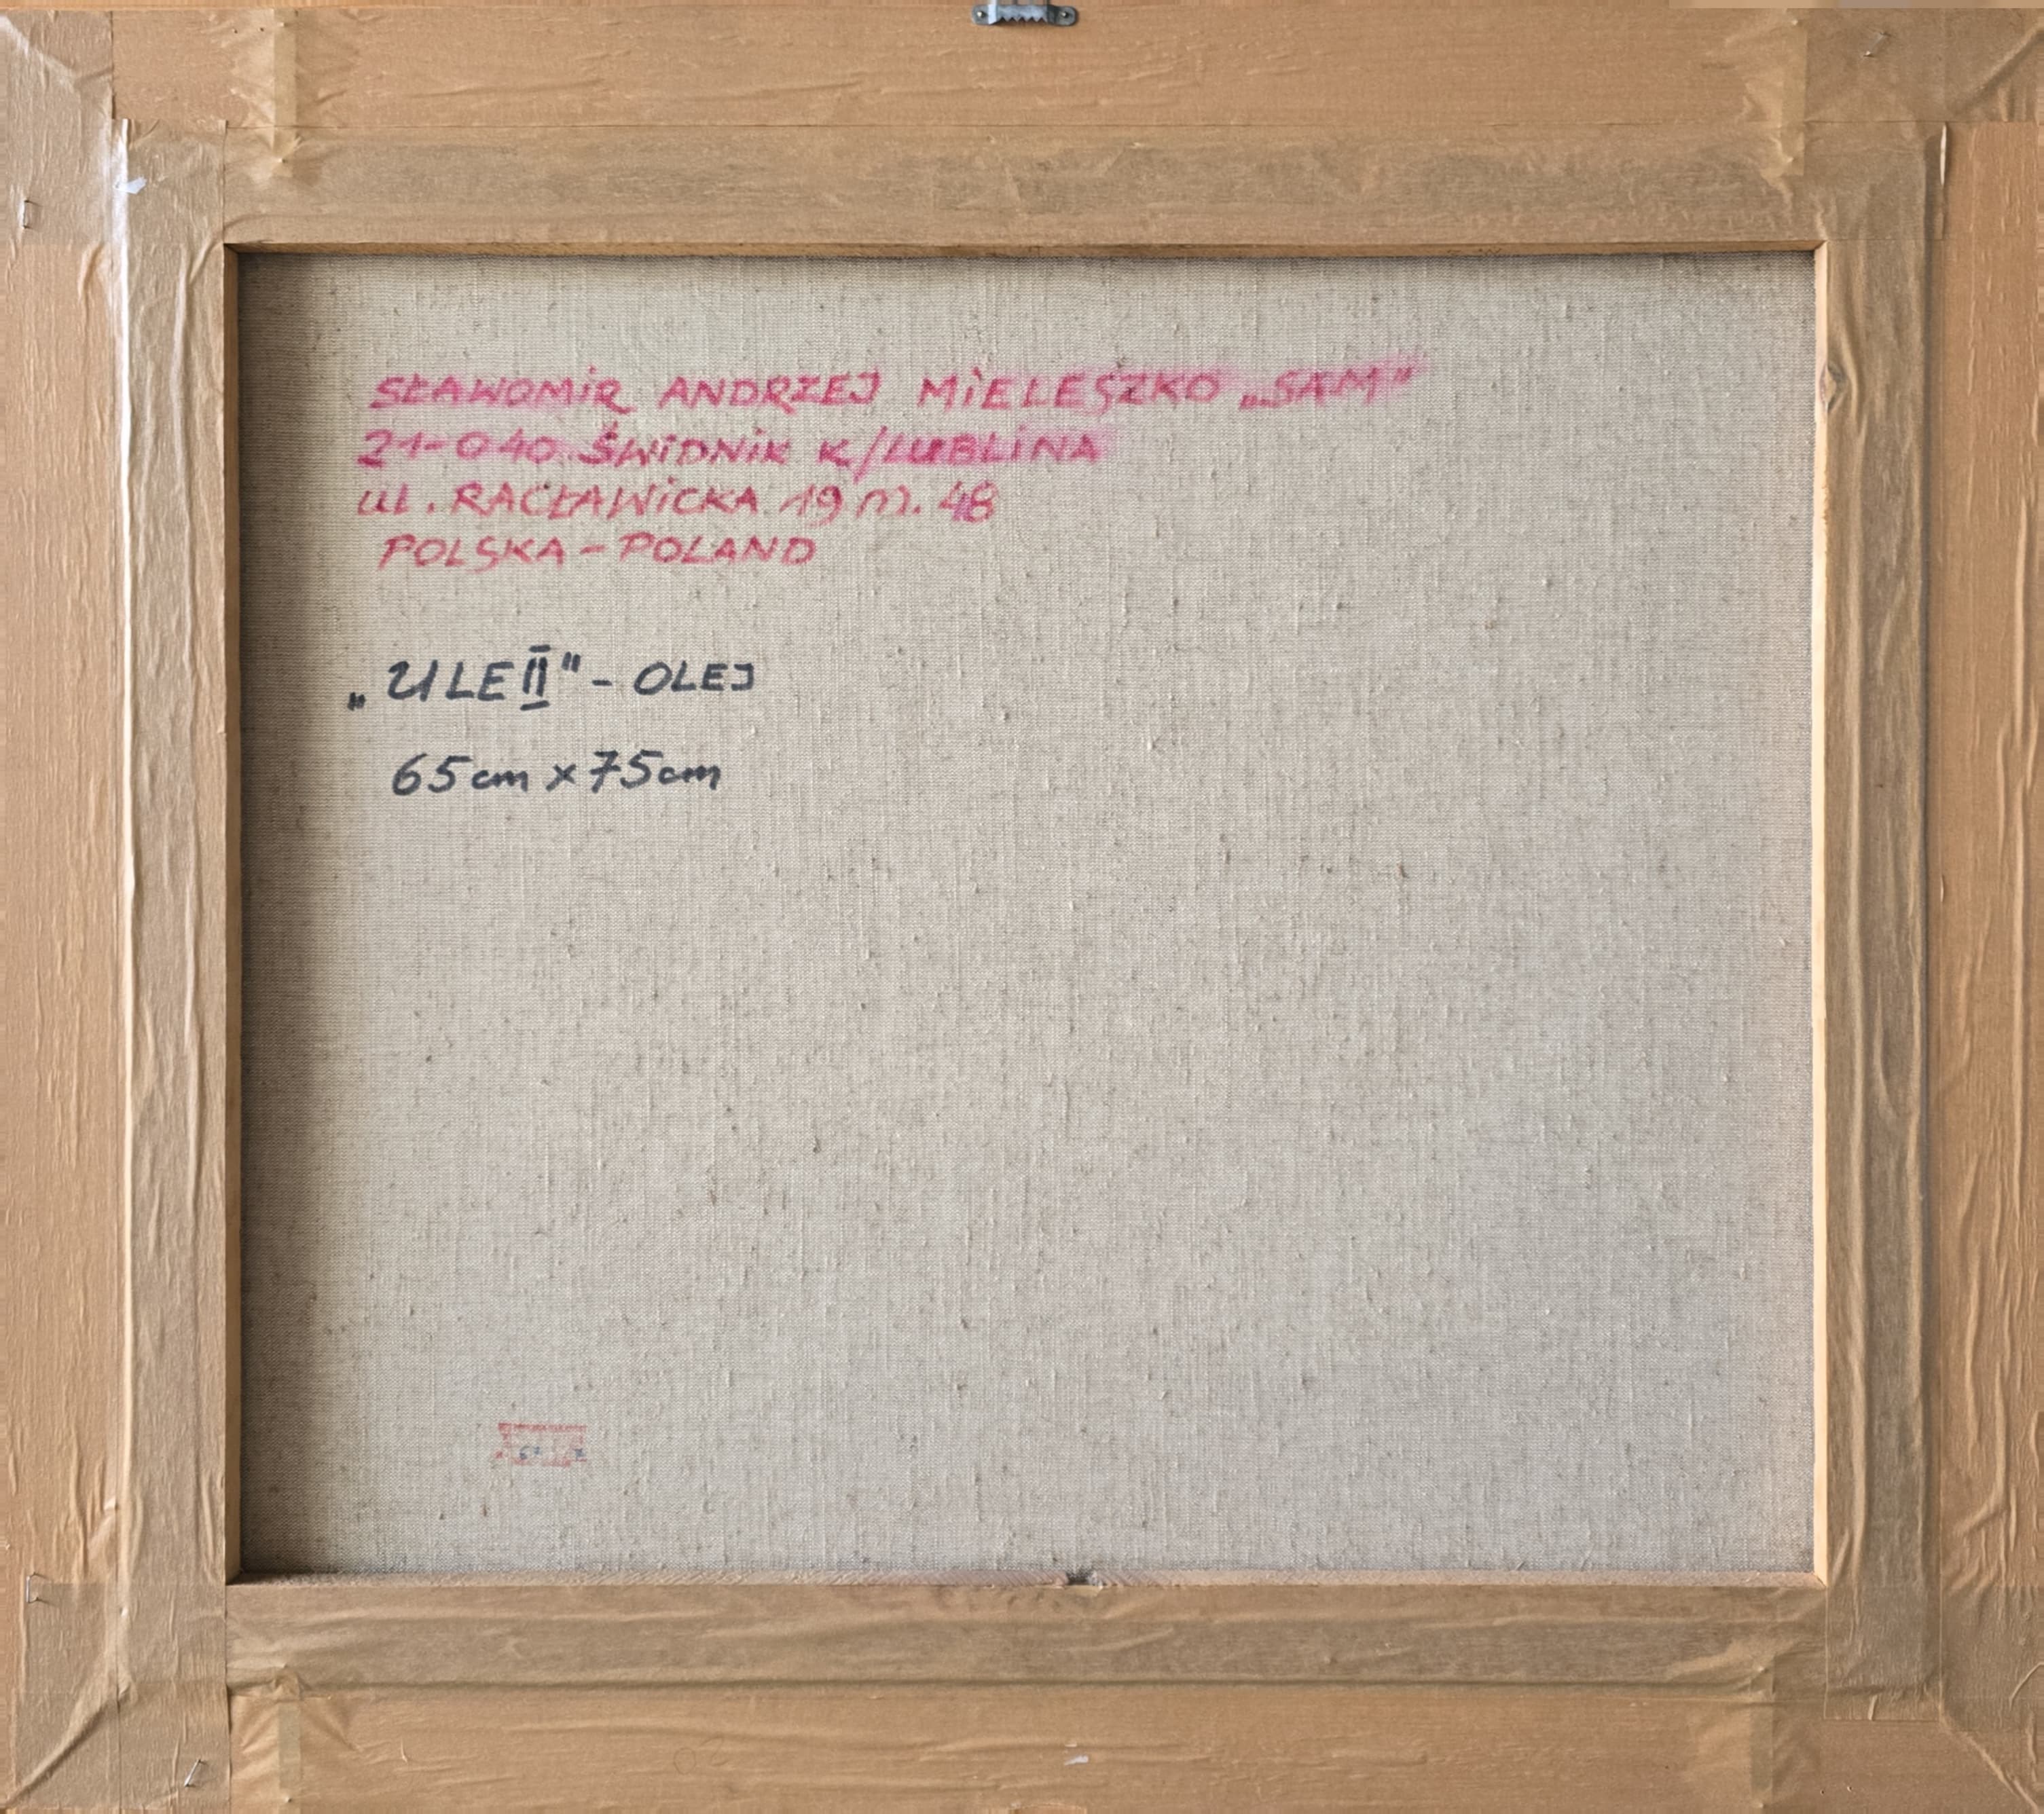 SŁAWOMiR ANDRZEJ MiELESZKO „SAM"
21-040 ŚWiDNiK K/LUBLiNA
ul. RACŁAWiCKA 19 m. 48
POLSKA - POLAND
„ULE II" - OLEJ
65cm x 75cm